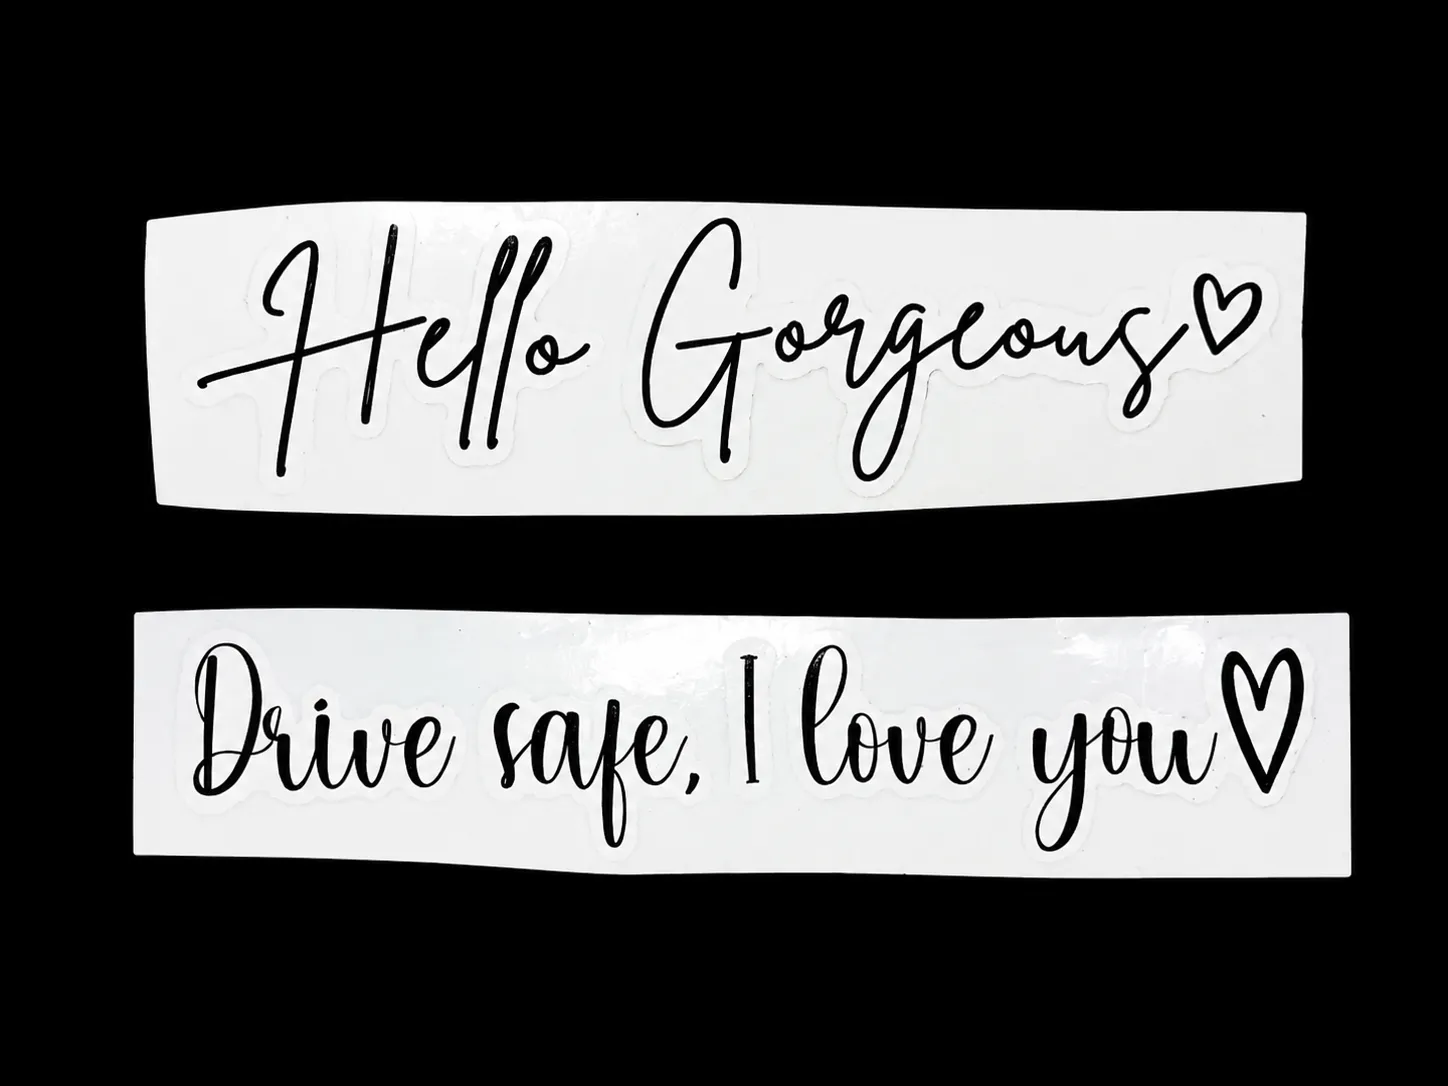 Hello Gorgeous♡
Drive safe, I love you♡